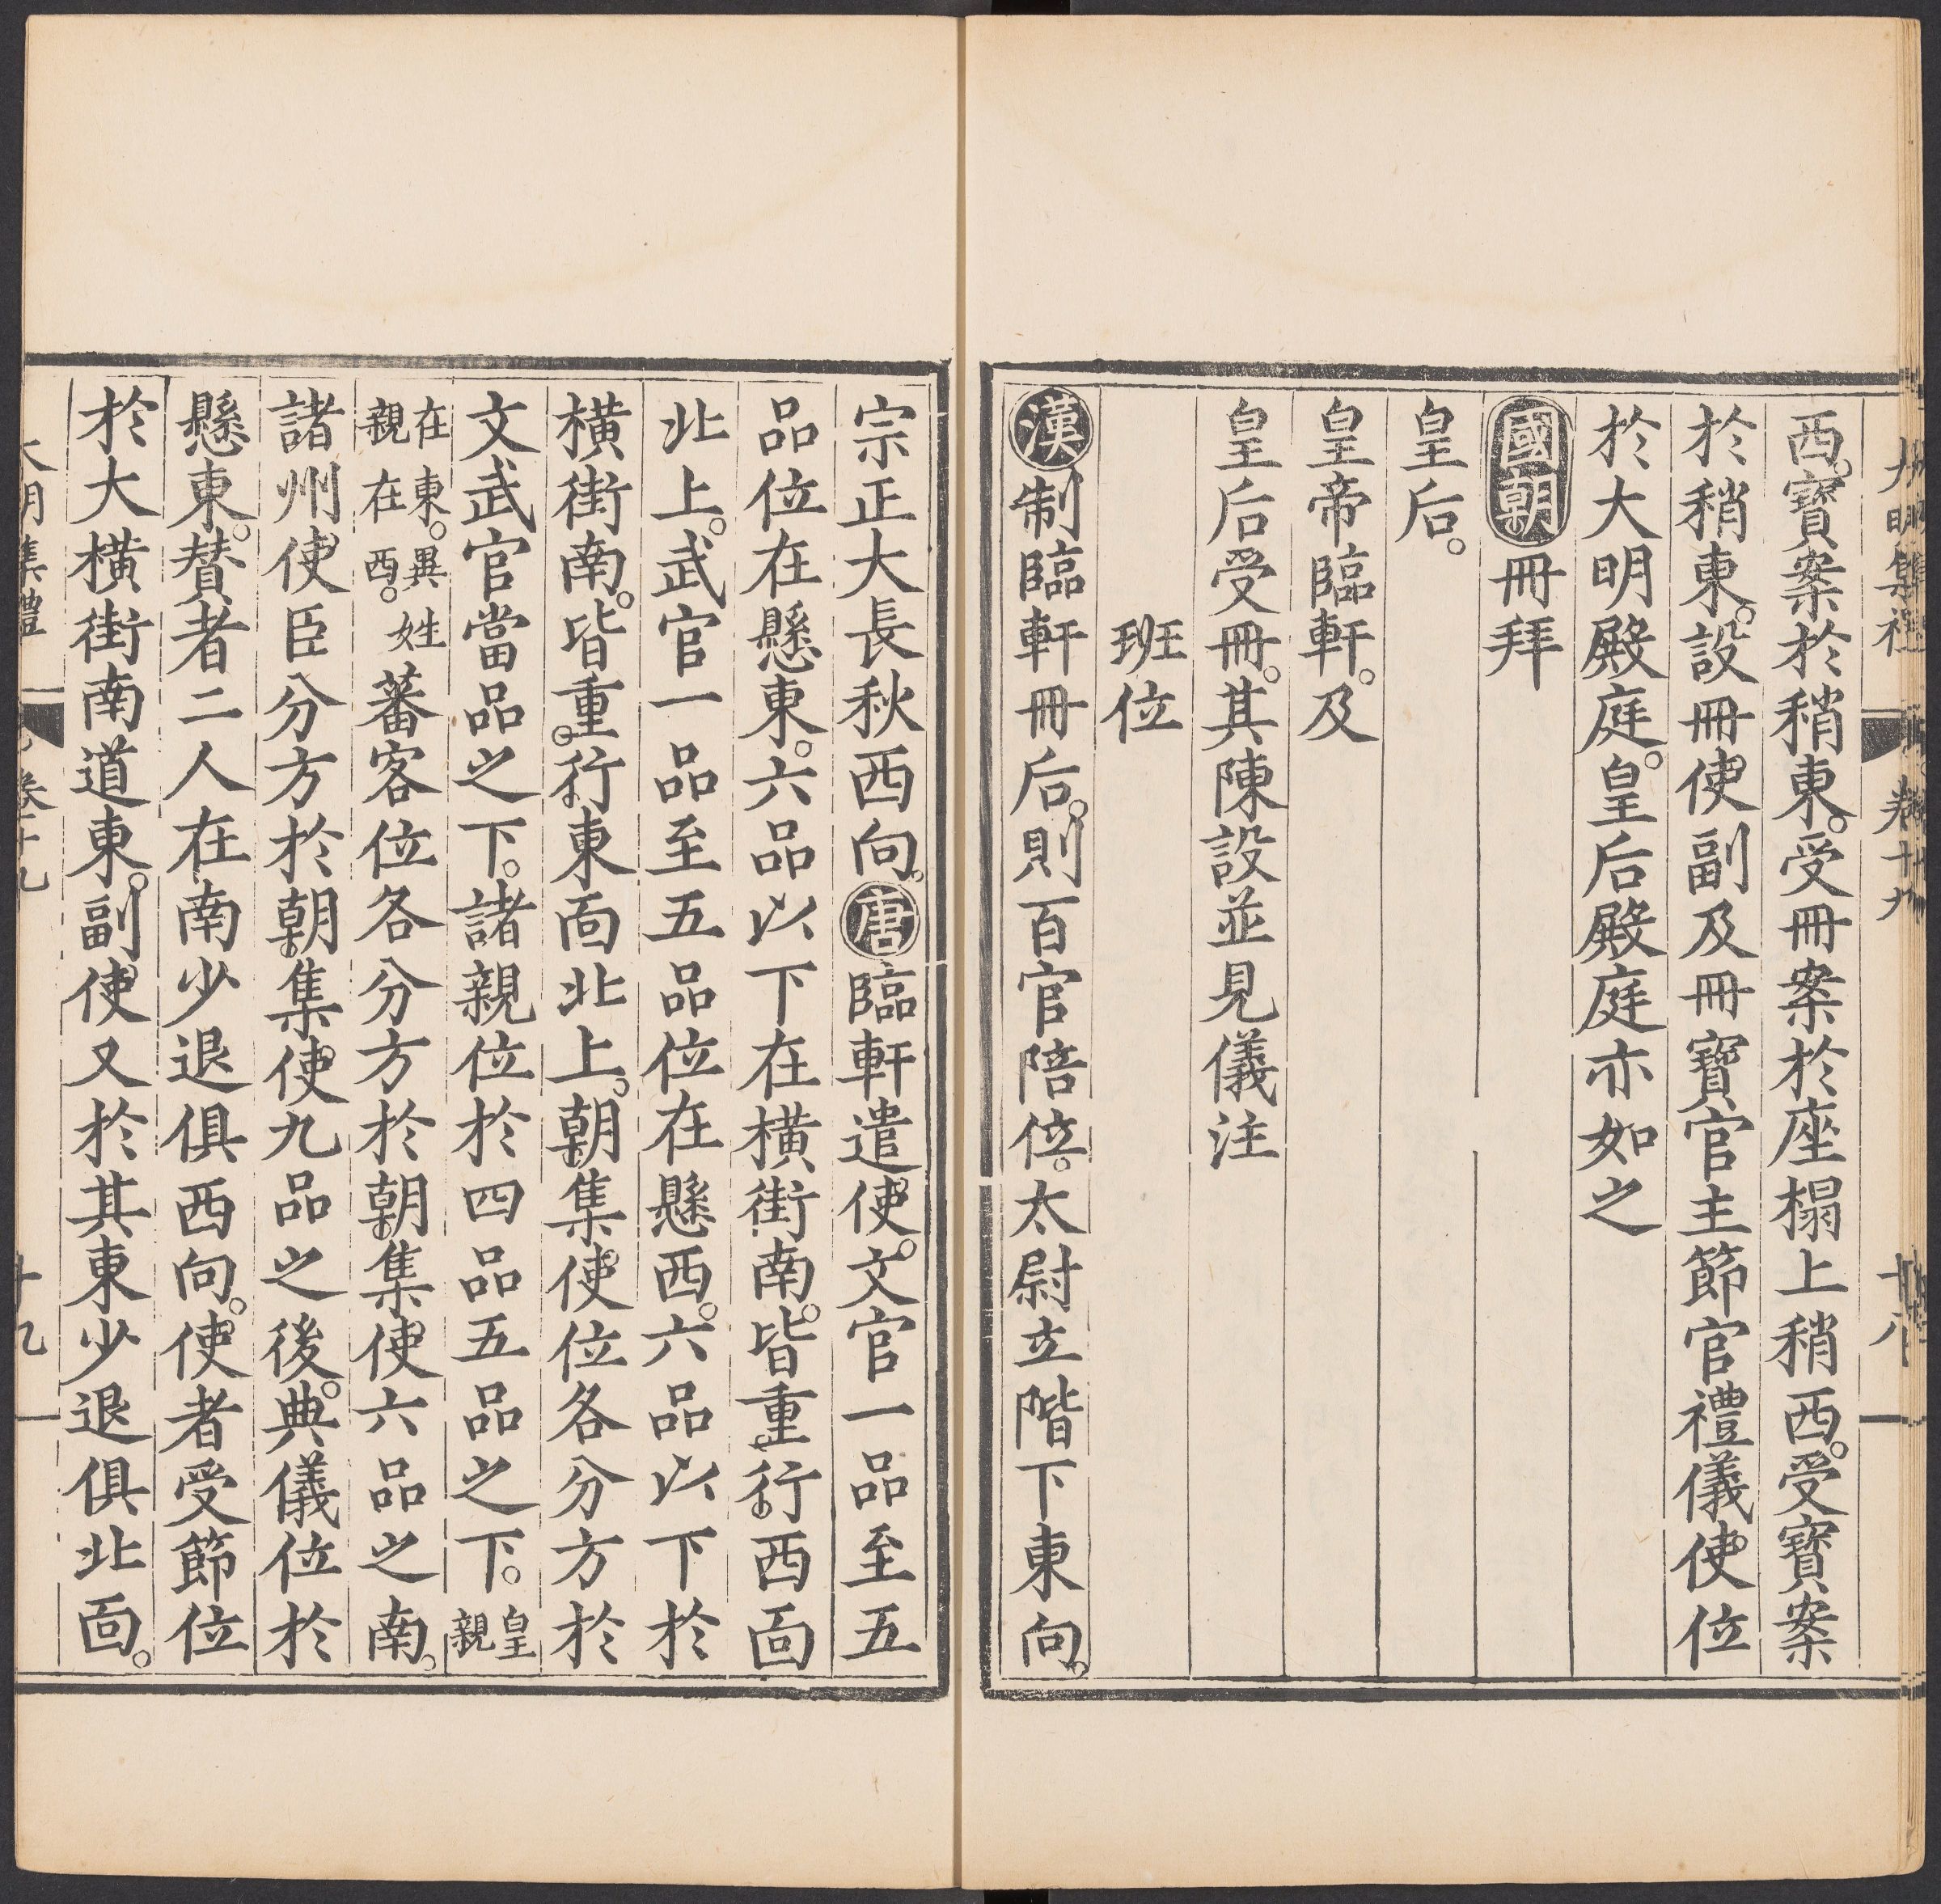 大明集禮 卷十九 十八
西。寶案於稍東。受冊案於座榻上稍西。受寶案
於稍東。設冊使副及冊寶官主節官禮儀使位
於大明殿庭。皇后殿庭亦如之
國朝冊拜
皇后。
皇帝臨軒。及
皇后受冊。其陳設並見儀注
班位
漢制臨軒冊后。則百官陪位。太尉立階下東向。
宗正大長秋西向。唐臨軒遣使。文官一品至五
品位在懸東。六品以下在橫街南。皆重行西面
北上。武官一品至五品位在懸西。六品以下於
橫街南。皆重行東面北上。朝集使位各分方於
文武官當品之下。諸親位於四品五品之下。皇親
在東。異姓親在西。蕃客位各分方於朝集使六品之南。
諸州使臣分方於朝集使九品之後。典儀位於
懸東。贊者二人在南少退俱西向。使者受節位
於大橫街南道東。副使又於其東少退俱北面。
大明集禮 卷十九 十九